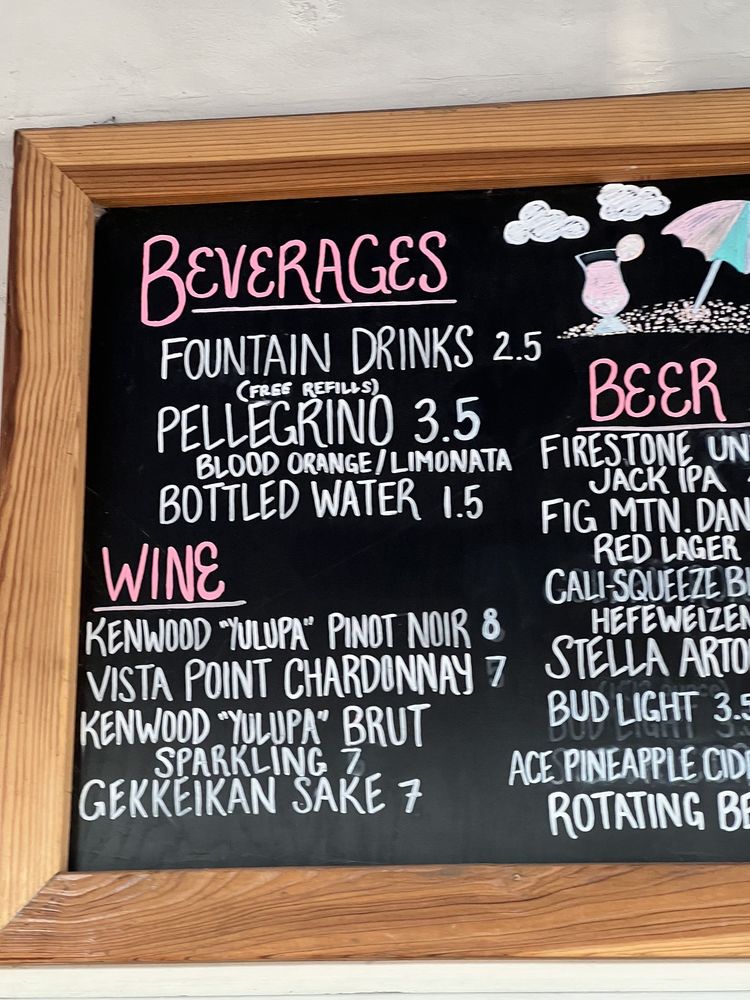 BEVERAGES
FOUNTAIN DRINKS 2.5
(FREE REFILLS)
PELLEGRINO 3.5
BLOOD ORANGE/LIMONATA
BOTTLED WATER 1.5
WINE
KENWOOD "YULUPA" PINOT NOIR 8
VISTA POINT CHARDONNAY 7
KENWOOD "YULUPA" BRUT
SPARKLING 7
GEKKEIKAN SAKE 7
BEER
FIRESTONE UN
JACK IPA
FIG MTN. DAN
RED LAGER
CALI-SQUEEZE BL
HEFEWEIZEN
STELLA ARTO
BUD LIGHT 3.5
ACE PINEAPPLE CID
ROTATING BE